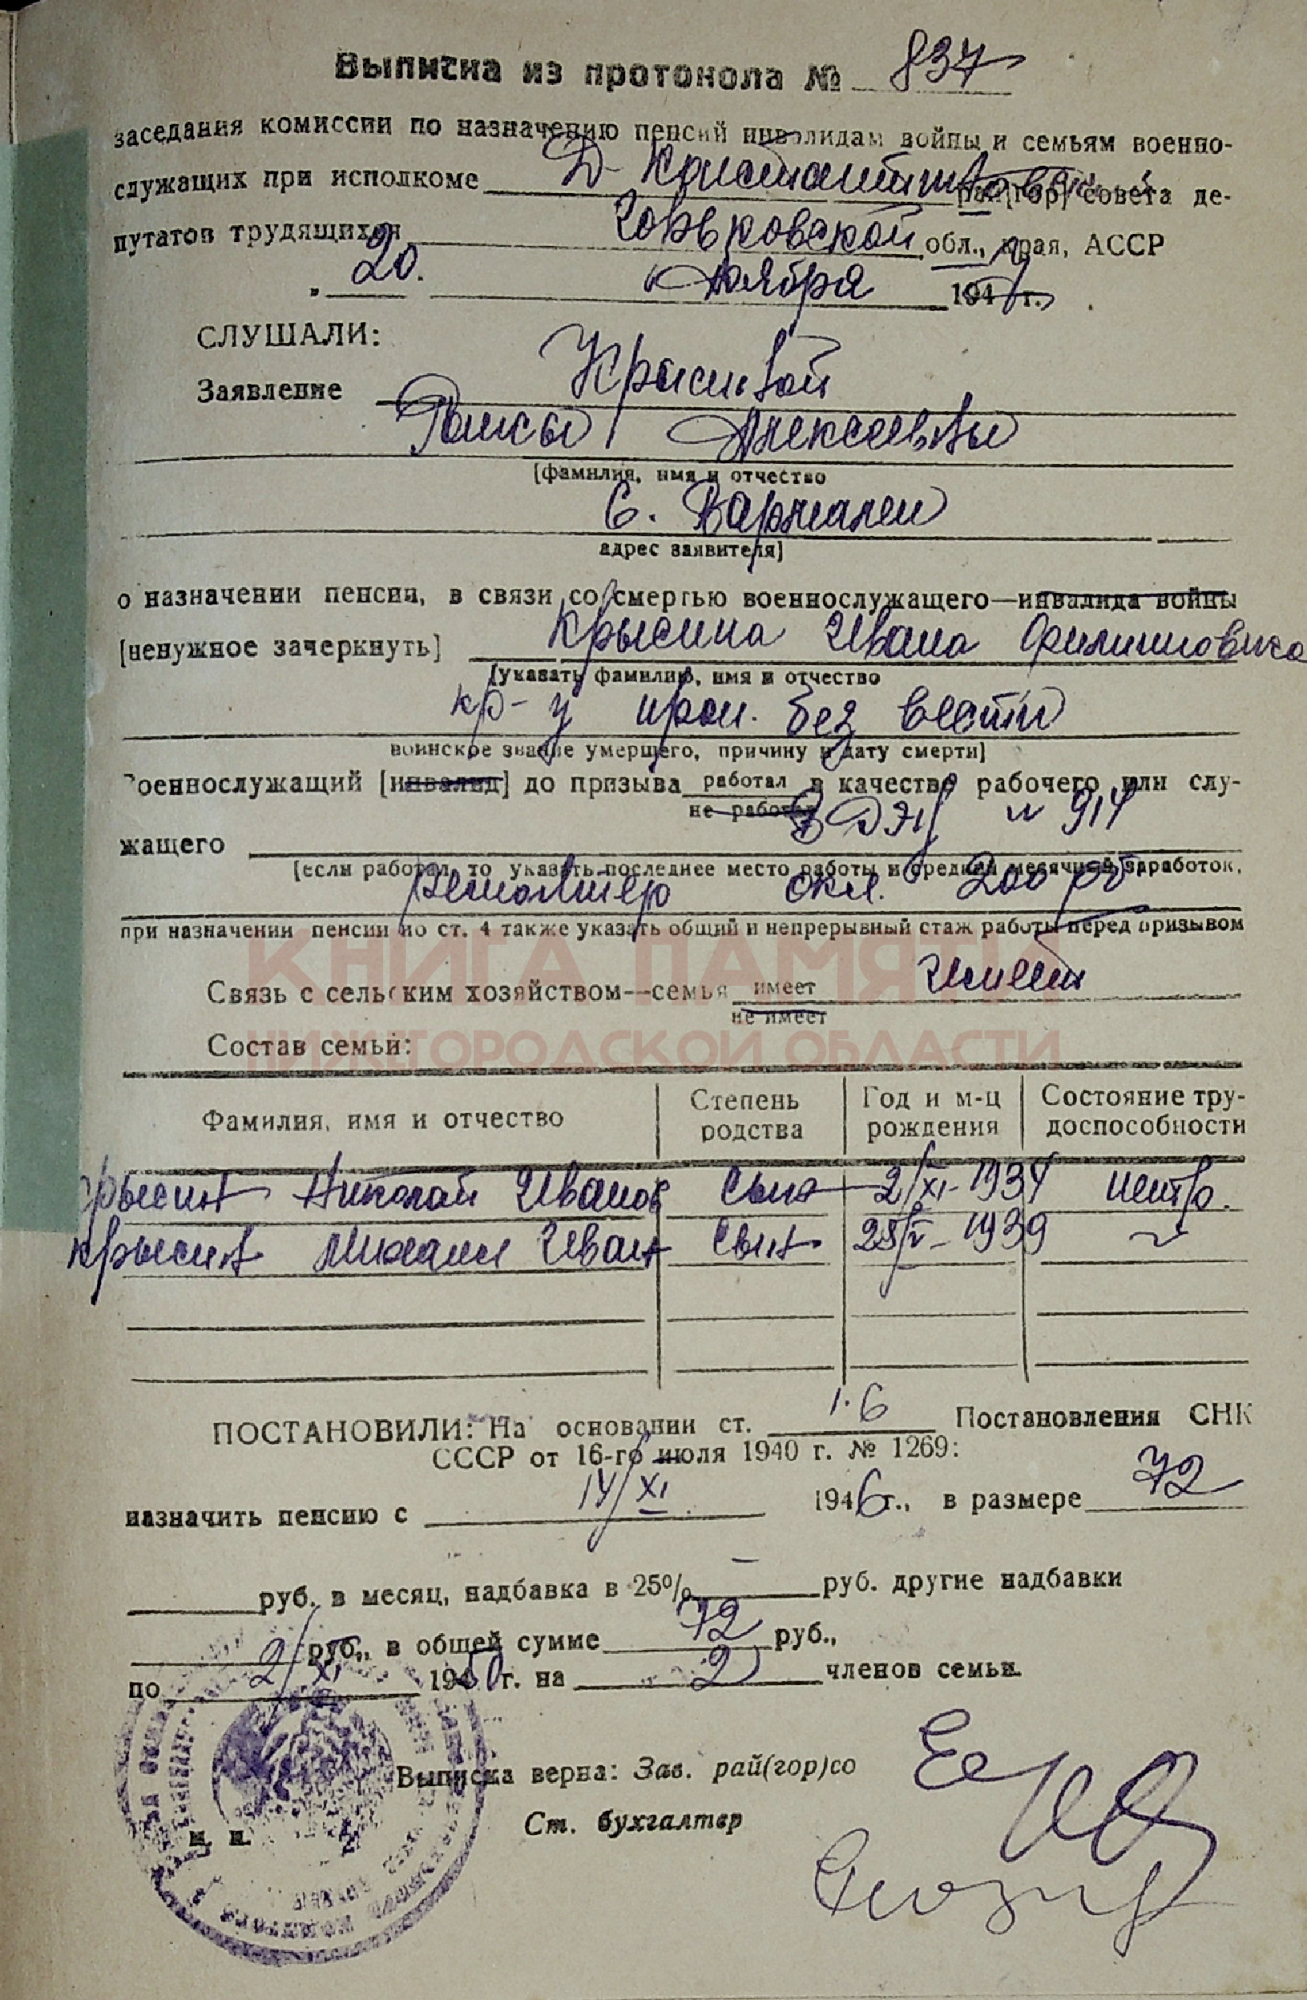 Выписка из протокола № 837
заседания комиссии по назначению пенсий инвалидам войны и семьям военно-
служащих при исполкоме Д-Константиновск рай[гор] совета де-
путатов трудящихся Горьковской обл., края, АССР
„ 20. " Ноября 194 г.
СЛУШАЛИ:
Заявление Крысиной
Раисы Алексеевны
[фамилия, имя и отчество
С.
адрес заявителя]
о назначении пенсии, в связи со смертью военнослужащего—инвалида войны
[ненужное зачеркнуть] Крысина Ивана Филипповича
[указать фамилию, имя и отчество
кр-ц проп. без вести
воинское звание умершего, причину и дату смерти]
Военнослужащий [инвалид] до призыва работал в качестве рабочего или слу-
не работал
жащего В ДЭУ № 914
[если работал, то указать последнее место работы и средний месячный заработок,
окл. 200 рб.
при назначении пенсии по ст. 4 также указать общий и непрерывный стаж работы перед призывом
КНИГА ПАМЯТИ
Связь с сельским хозяйством—семья имеет имеет
не имеет
НИЖЕГОРОДСКОЙ ОБЛАСТИ
Состав семьи:
Фамилия, имя и отчество Степень родства Год и м-ц рождения Состояние тру-доспособности
Крысин Николай Иванов Сын 2/XI-1934 нетр.
Крысин Михаил Иван Сын 1939 〃
ПОСТАНОВИЛИ: На основании ст. 1.6 Постановления СНК
СССР от 16-го июля 1940 г. № 1269:
назначить пенсию с 14/XI 1946 г., в размере 72
руб. в месяц, надбавка в 25% — руб. другие надбавки
руб., в общей сумме 72 руб.,
по 2/XI 1950 г. на 2 членов семьи.
Выписка верна: Зав. рай(гор)со
Ст. бухгалтер
м. п.